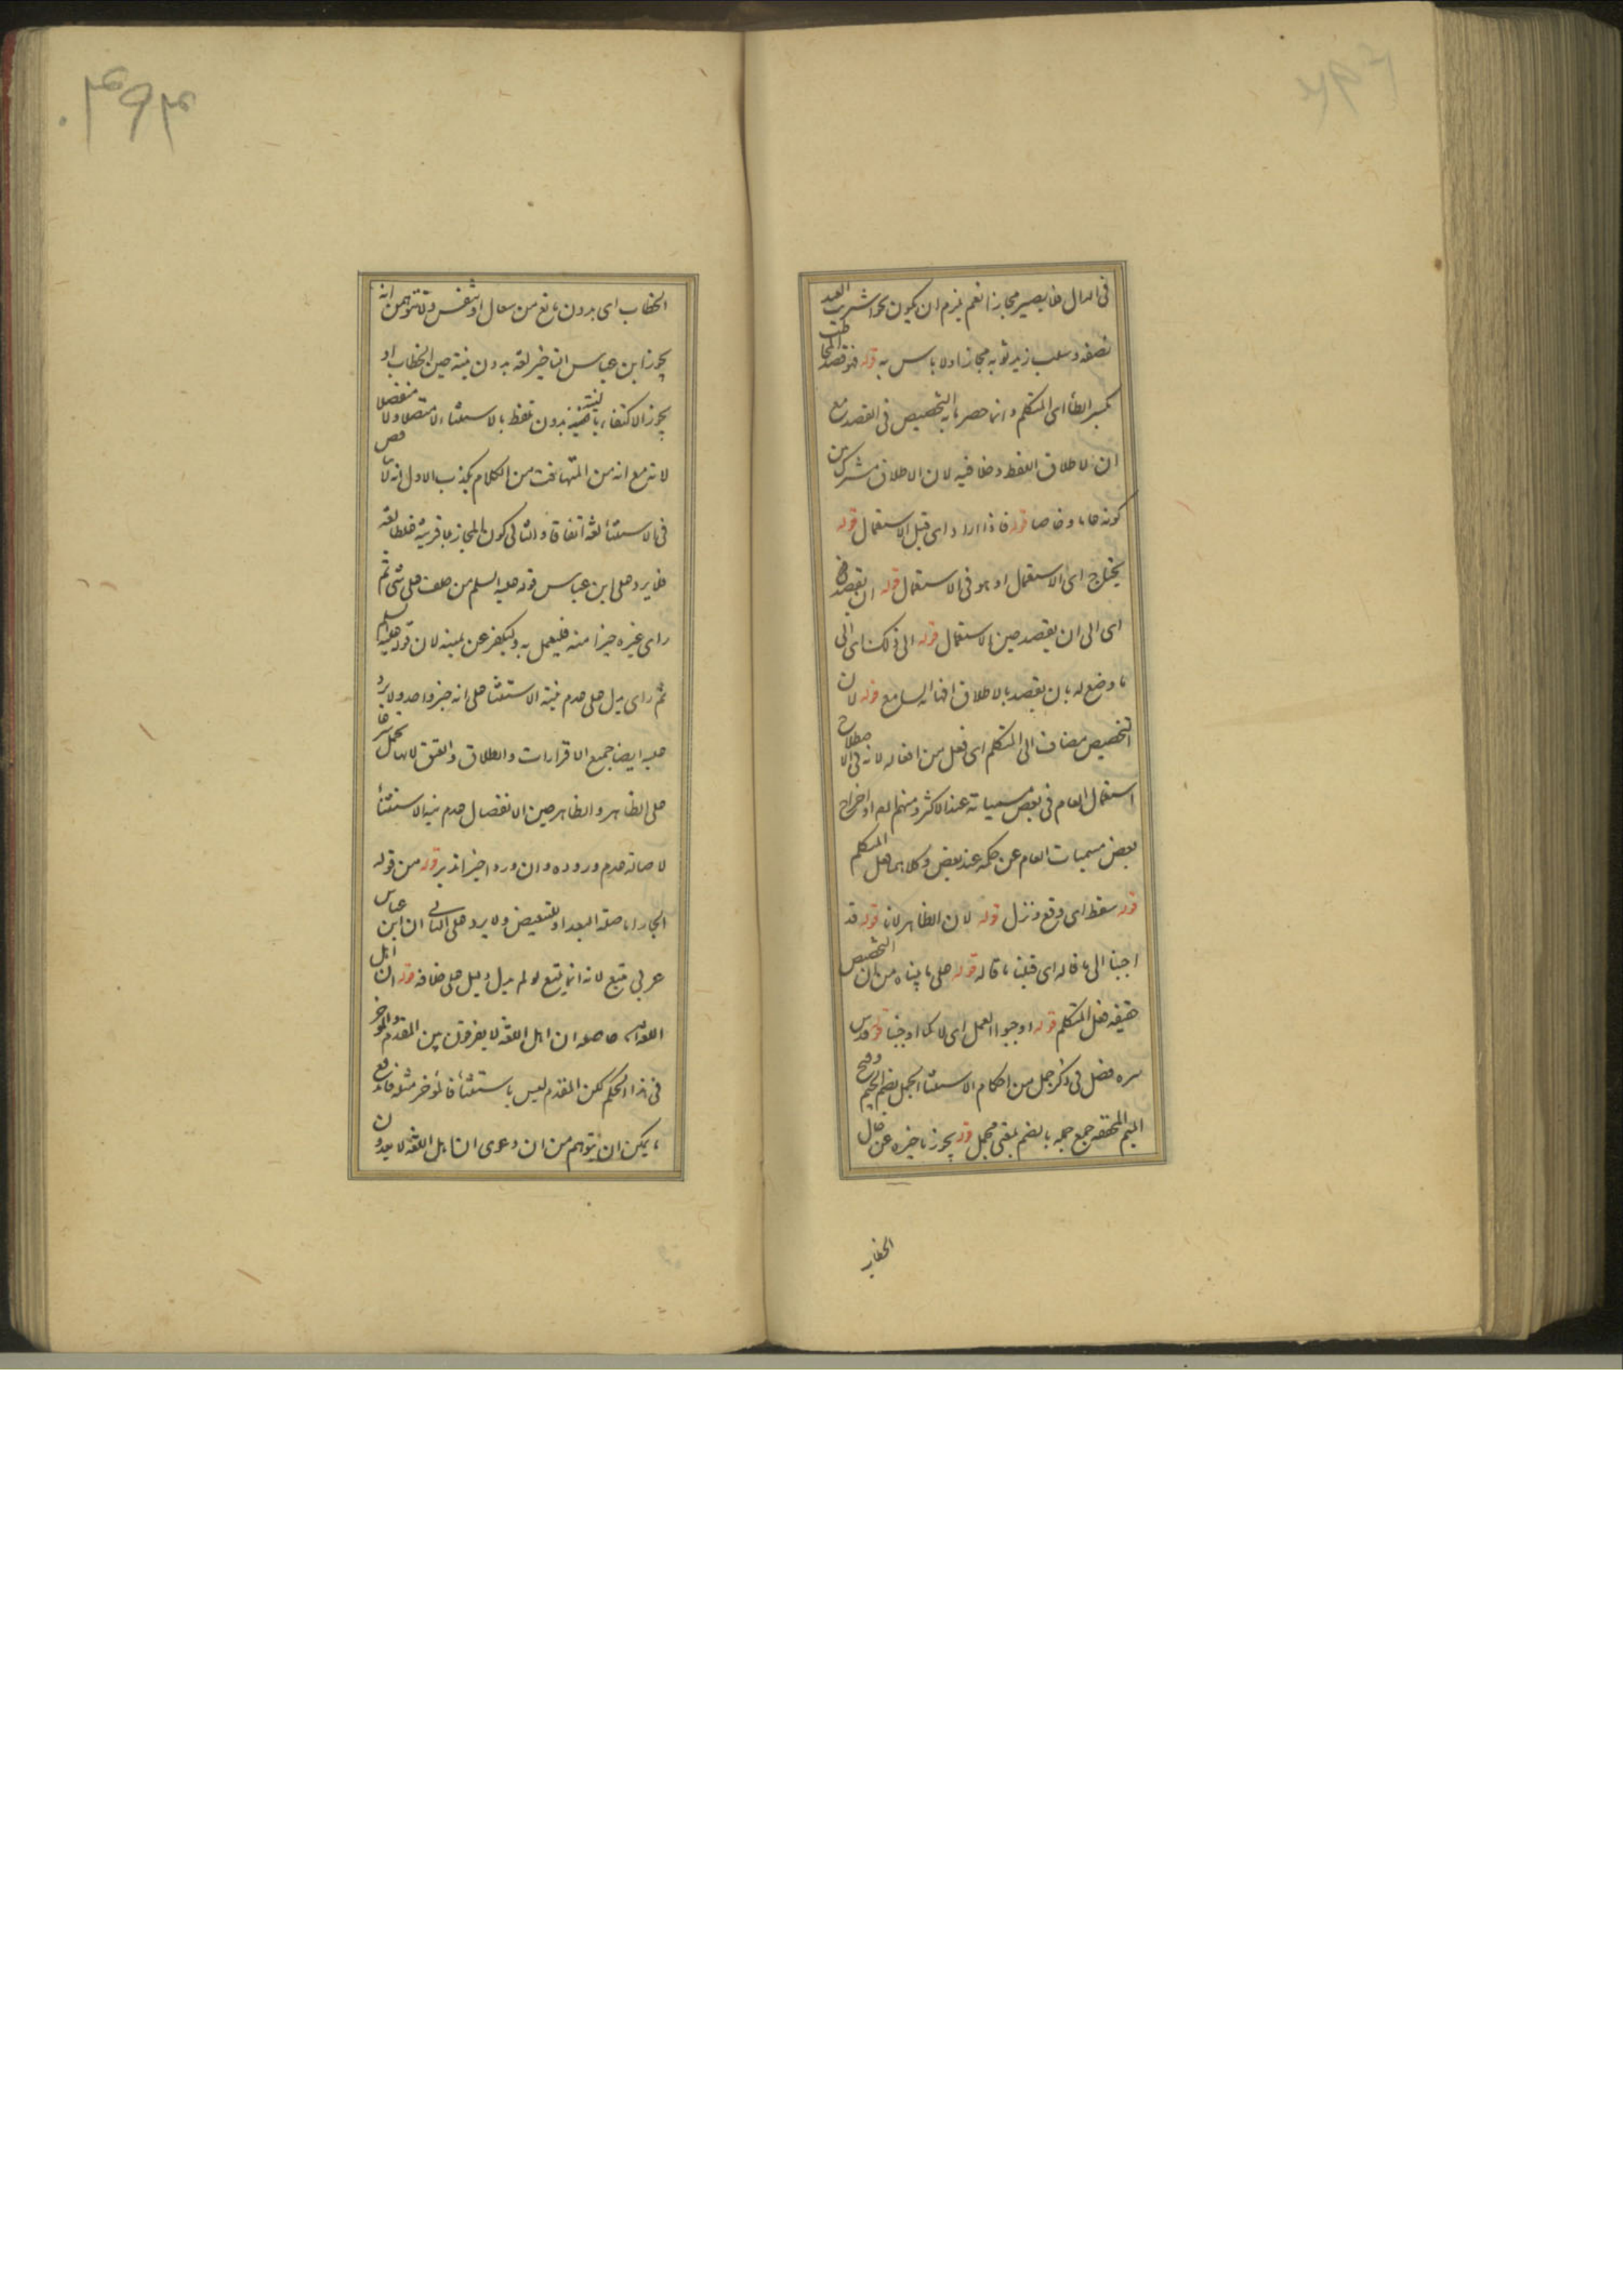 فى الدال فلا يصير مجازا نعم يلزم ان يكون نحو اشتريت العبد
نصفه وسلب زيد ثوبه مجازا ولا باس به قوله فهو قصد المخاطب
بكسر الطاء اى المتكلم وانما حصر ما به التخصيص فى القصد مع
ان الاطلاق اللفظ دخلا فيه لان الاطلاق مشترك بين
كونه عاما وخاصا قوله فاذا اراد اى قبل الاستعمال قوله
يحتاج اى الاستعمال او هو فى الاستعمال قوله ان يقصد
اى الى ان يقصد حين الاستعمال قوله الى ذلك اى الى
ما وضع له بان يقصد بالاطلاق افهام السامع قوله لان
التخصيص مضاف الى المتكلم اى فعل من افعاله لانه فى الاصطلاح
استعمال العام فى بعض مسمياته عند الاكثر ومنهم او اخراج
بعض مسميات العام عن حكمه عند بعض وكلاهما فعل المتكلم
قوله سقط اى وقع ونزل قوله لان الظاهر لانا قوله قد
اجبنا الى ما قاله اى قبلنا ما قاله قوله على ما بيناه من ان التخصيص
حقيقة فعل المتكلم قوله اوجبوا العمل اى لا كما اوجبنا قوله قدس
سره فصل فى ذكر جمل من احكام الاستثناء الجمل بضم الجيم وفتح
الميم المخففة جمع جملة بالضم بمعنى مجمل قوله يجوز تاخيره عن حال
الخطاب
الخطاب اى بدون مانع من سعال او تنفس ولا تتوهمن انه
يجوز ابن عباس التاخير لغة بدون نية حين الخطاب او
يجوز الاكتفاء بالنية بدون تلفظ بالاستثناء لا متصلا ولا منفصلا
لانه مع انه من المتهافت من الكلام يكذب الاول انه لا نص
فى الاستثناء لغة اتفاقا والثانى كون المجاز بلا قرينة غلطا لغة
فلا يرد على ابن عباس قوله عليه السلم من حلف على شى ثم
راى غيره خيرا منه فليعمل به وليكفر عن يمينه لان قوله عليه السلم
ثم راى يدل على عدم نية الاستثناء على انه خبر واحد ولا يرد
عليه ايضا جميع الاقرارات والطلاق والعتق لانها تحمل شرعا
على الظاهر والظاهر حين الانفصال عدم نية الاستثناء
لاصالة عدم وروده وان ورد اخيرا تدبر قوله من قوله
الجار اما صلة البعد او للتبعيض ولا يرد على الثانى ان ابن عباس
عربى متبع لانه انما يتبع لو لم يدل دليل على خلافه قوله ان اهل
اللغة اه حاصله ان اهل اللغة لا يفرقون بين المقدم والمؤخر
فى هذا الحكم لكن المقدم ليس باستثناء فالمؤخر مثله فاندفع
ما يمكن ان يتوهم من ان دعوى ان اهل اللغة لا يعدون